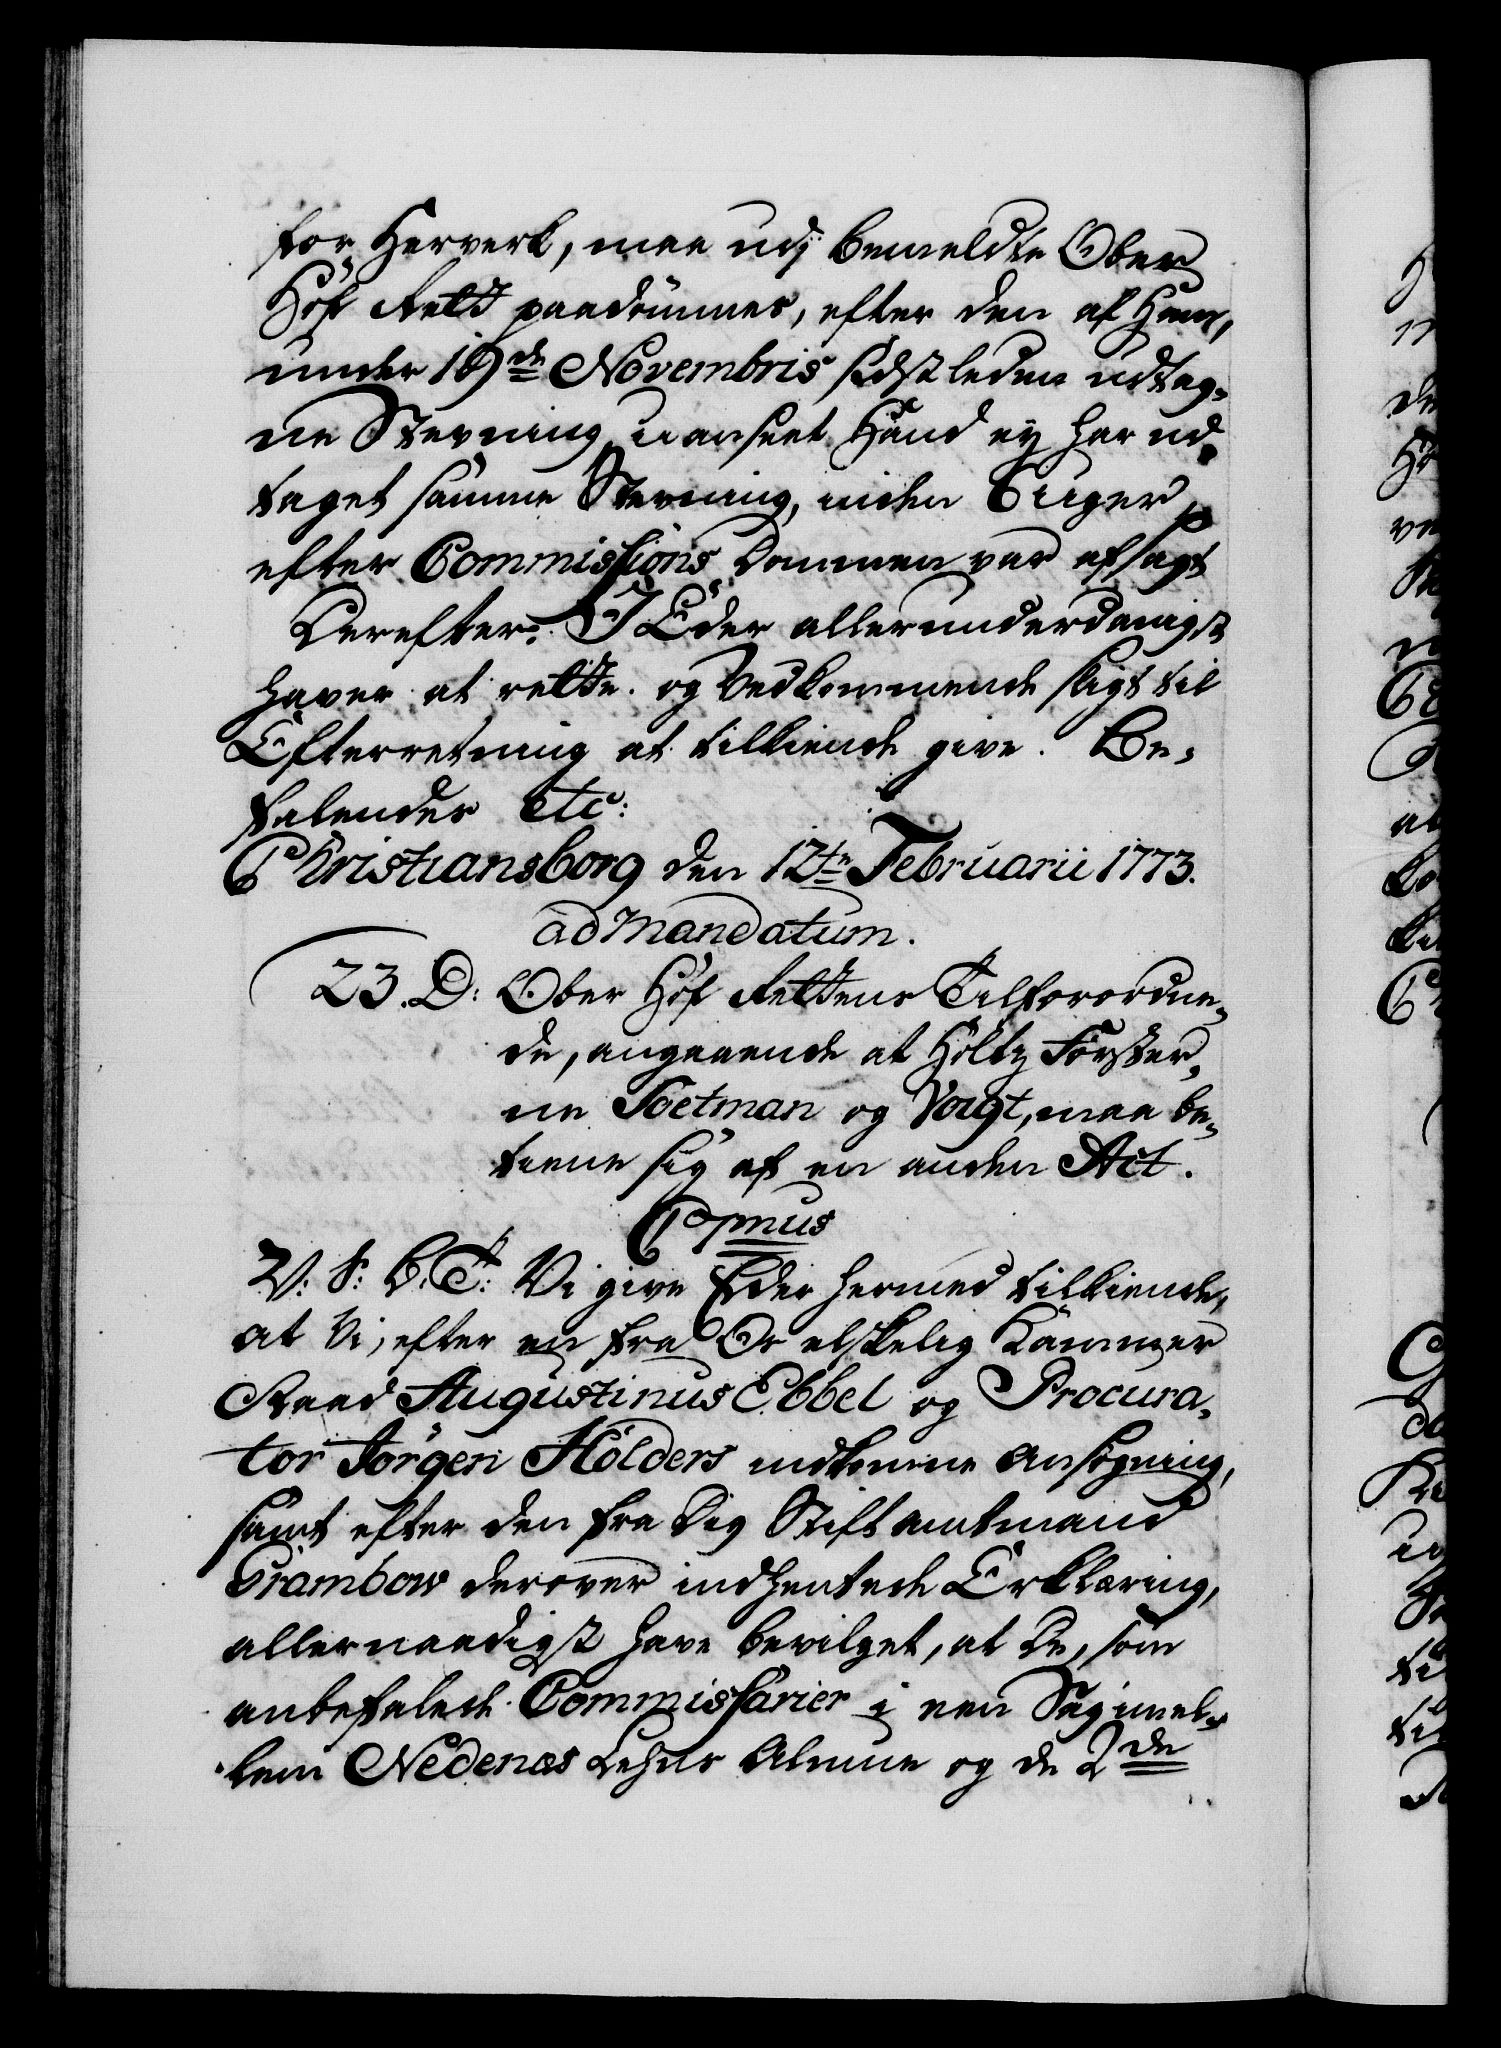 for Herverk, maa udj bemeldte Ober
Hof Rett paadömmes, efter den af Ham,
under 19de Novembris sidstleden udtag-
ne Stevning, uanseet Hand ey har ud-
taget samme Stevning, inden 6 Uger
efter Commissions Dommen var afsagt
Derefter I Eder allerunderdanigst
haver at rette. og Vedkommende sligt til
Efterretning at tilkiende give. Be-
falendes etc:
Christiansborg den 12te Februarii 1773.
ad Mandatum.
23. D: Ober Hof Rettens Tilforordne-
de, angaaende at Höltz Förster-
ne Toetman og Voigt, maa be-
tiene sig af en anden Act.
Cmus
V: S: B: T: Vi give Eder hermed tilkiende,
at Vi, efter en fra Os elskelig Kammer
Raad Augustinus Ebbel og Procura-
tor Jörgen Hölders indkomne Ansögning,
samt efter den fra Dig Stiftamtmand
Trambow derover indhentede Erklæring,
allernaadigst have bevilget, at De, som
anbefalede Commissarier i een Sag imel-
lem Nedenæs Lehns Almue og de 2de